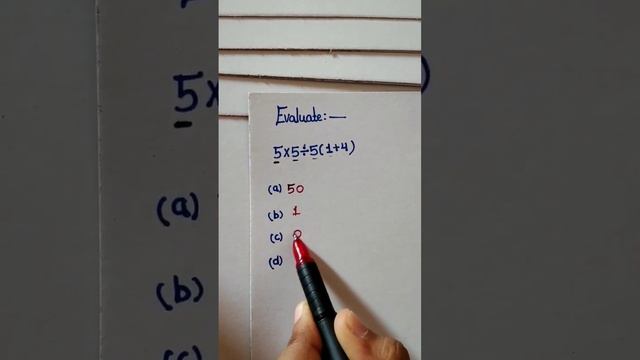 Evaluate:—
5×5÷5(1+4)
(a) 50
(b) 1
(c) 0
(d)